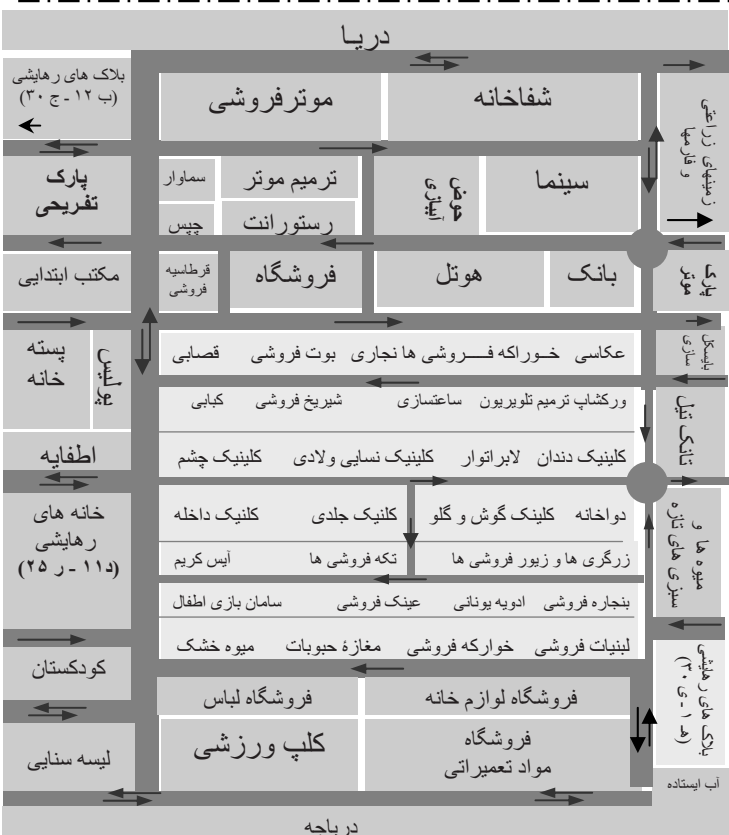 دریـا
بلاک های رهایشی
(ب ۱۲ ـ ج ۳۰)
موترفروشی
شفاخانه
زمینهای زراعتی
و فارمها
پارک
تفریحی
سماوار
ترمیم موتر
حوض
آببازی
سینما
چپس
رستورانت
مکتب ابتدایی
قرطاسیه
فروشی
فروشگاه
هوتل
بانک
پارک
موتر
پسته
خانه
پولیس
عکاسی خــوراکه فـــــروشی ها نجاری بوت فروشی قصابی
بایسکل
سازی
ورکشاپ ترمیم تلویریون ساعتسازی شیریخ فروشی کبابی
تانک تیل
اطفایه
کلینیک دندان لابراتوار کلینیک نسایی ولادی کلینیک چشم
خانه های
رهایشی
(د۱۱ ـ ر ۲۵)
دواخانه کلینک گوش و گلو کلنیک جلدی کلنیک داخله
میوه ها و
سبزی های تازه
زرگری ها و زیور فروشی ها تکه فروشی ها آیس کریم
بنجاره فروشی ادویه یونانی عینک فروشی سامان بازی اطفال
لبنیات فروشی خوارکه فروشی مغازۀ حبوبات میوه خشک
کودکستان
بلاک های رهایشی
(هـ ۱ ـ ی ۳۰)
فروشگاه لوازم خانه
فروشگاه لباس
لیسه سنایی
کلپ ورزشی
فروشگاه
مواد تعمیراتی
آب ایستاده
دریاچه